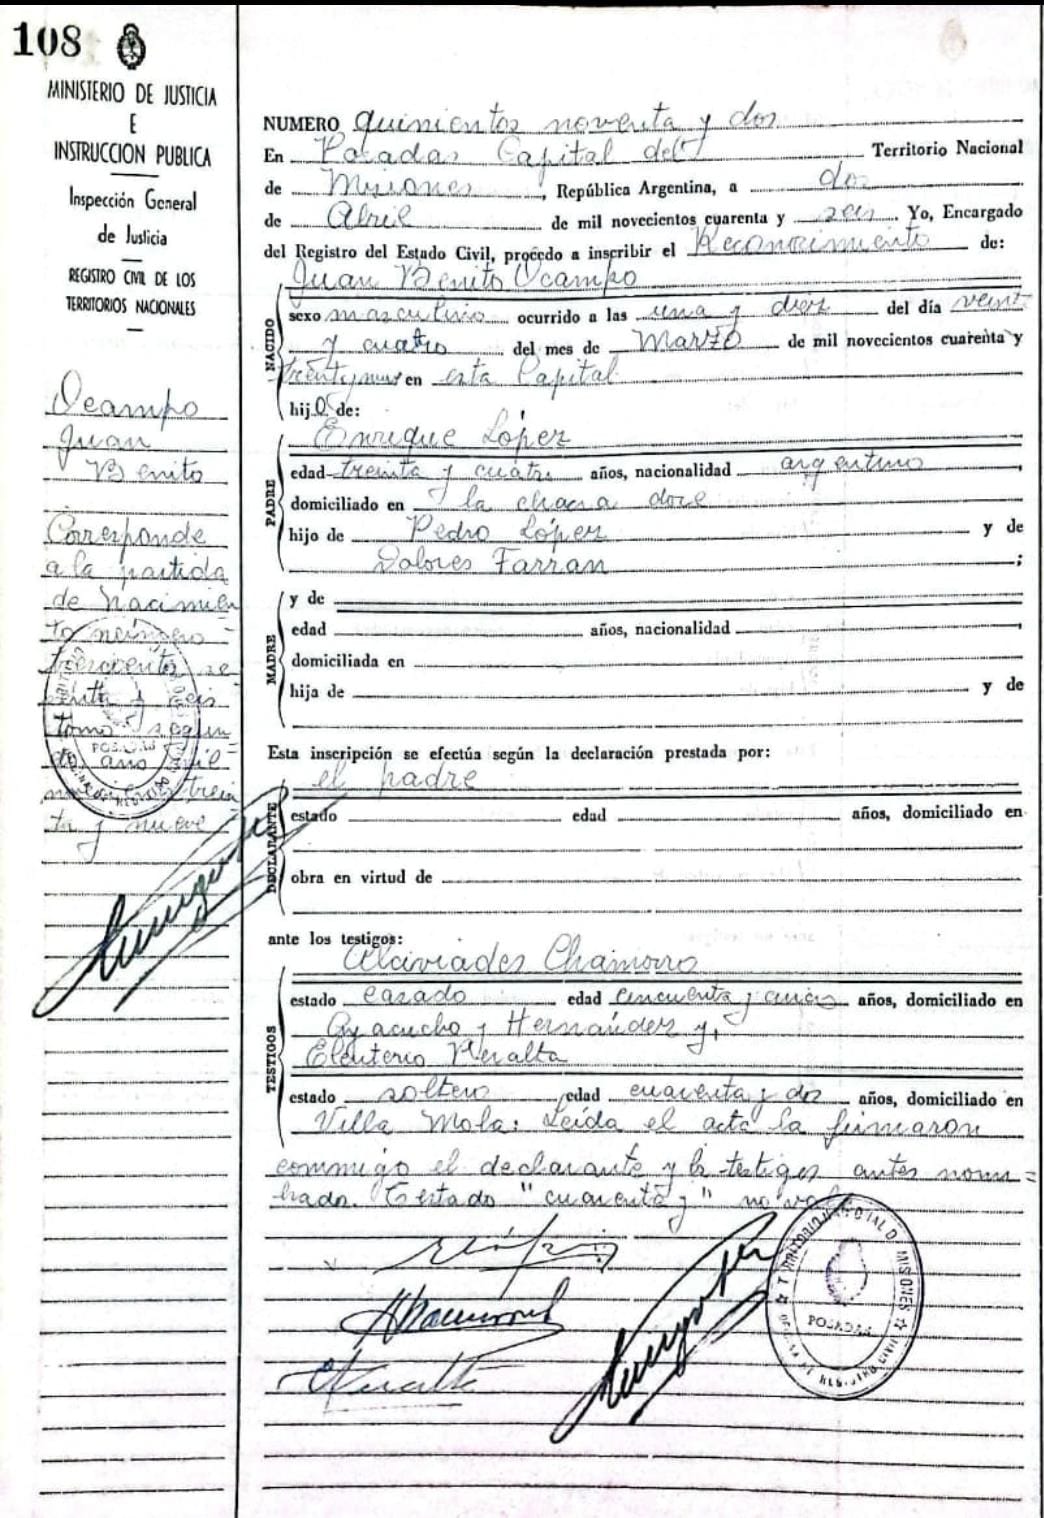 108
MINISTERIO DE JUSTICIA
E
INSTRUCCION PUBLICA
Inspección General
de Justicia
REGISTRO CIVIL DE LOS
TERRITORIOS NACIONALES
Ocampo
Juan
Benito
Corresponde
a la partida
de nacimien
to número
trescientos se
senta y seis
tomo segun
do año mil
novecientos trein
ta y nueve
NUMERO quinientos noventa y dos
En Posadas Capital del Territorio Nacional
de Misiones, República Argentina, a dos
de Abril de mil novecientos cuarenta y seis. Yo, Encargado
del Registro del Estado Civil, procedo a inscribir el Reconocimiento de:
NACIDO
Juan Benito Ocampo
sexo masculino ocurrido a las una y diez del día veinti
y cuatro del mes de Marzo de mil novecientos cuarenta y
treinta y nueve en esta Capital
hijo de:
PADRE
Enrique López
edad treinta y cuatro años, nacionalidad argentino,
domiciliado en la chacra doce
hijo de Pedro López y de
Dolores Farran;
MADRE
y de
edad años, nacionalidad
domiciliada en
hija de y de
Esta inscripción se efectúa según la declaración prestada por:
el padre
DECLARANTE
estado edad años, domiciliado en
obra en virtud de
ante los testigos:
TESTIGOS
Alciviades Chamorro
estado casado edad cincuenta y años, domiciliado en
Ayacucho y Hernández y,
Eleuterio Peralta
estado soltero edad cuarenta y dos años, domiciliado en
Villa Mola. Leída el acta la firmaron
conmigo el declarante y los testigos antes nom=
brado. Testado "cuarenta y" no vale
TERRITORIO NACIONAL D MISIONES
POSADAS
OFICINA DE REGISTRO CIVIL